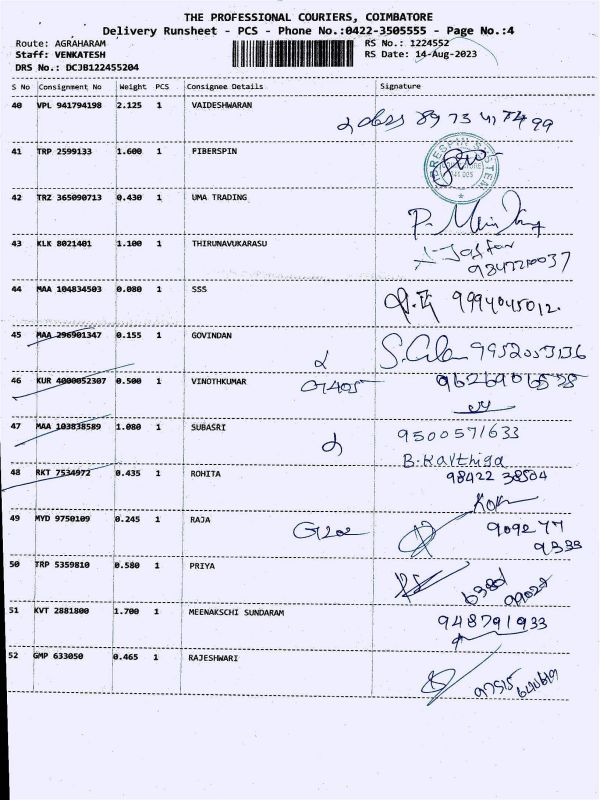 THE PROFESSIONAL COURIERS, COIMBATORE
Delivery Runsheet - PCS - Phone No.:0422-3505555 - Page No.:4
Route: AGRAHARAM RS No.: 1224552
Staff: VENKATESH RS Date: 14-Aug-2023
DRS No.: DCJB122455204
S No Consignment No Weight PCS Consignee Details Signature
40 VPL 941794198 2.125 1 VAIDESHWARAN
41 TRP 2599133 1.600 1 FIBERSPIN
42 TRZ 365090713 0.430 1 UMA TRADING
43 KLK 8021401 1.100 1 THIRUNAVUKARASU
44 MAA 104834503 0.080 1 SSS 9994045012.
45 MAA 296901347 0.155 1 GOVINDAN
46 KUR 4000052307 0.500 1 VINOTHKUMAR
47 MAA 103838589 1.080 1 SUBASRI 9500571633
B.Karthiga
48 RKT 7534972 0.435 1 ROHITA 98422 38504
49 MYD 9750109 0.245 1 RAJA 909277
9333
50 TRP 5359810 0.580 1 PRIYA
51 KVT 2881800 1.700 1 MEENAKSCHI SUNDARAM 948791933
52 GMP 633050 0.465 1 RAJESHWARI